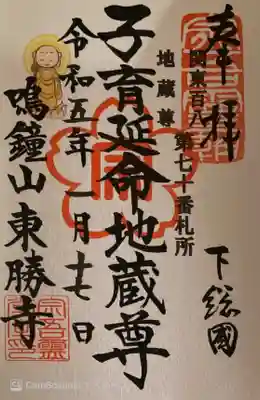 奉拝
関東百八
地蔵尊
第七十番札所
下総國
子育延命地蔵尊
令和五年一月十七日
鳴鐘山東勝寺
CamScanner